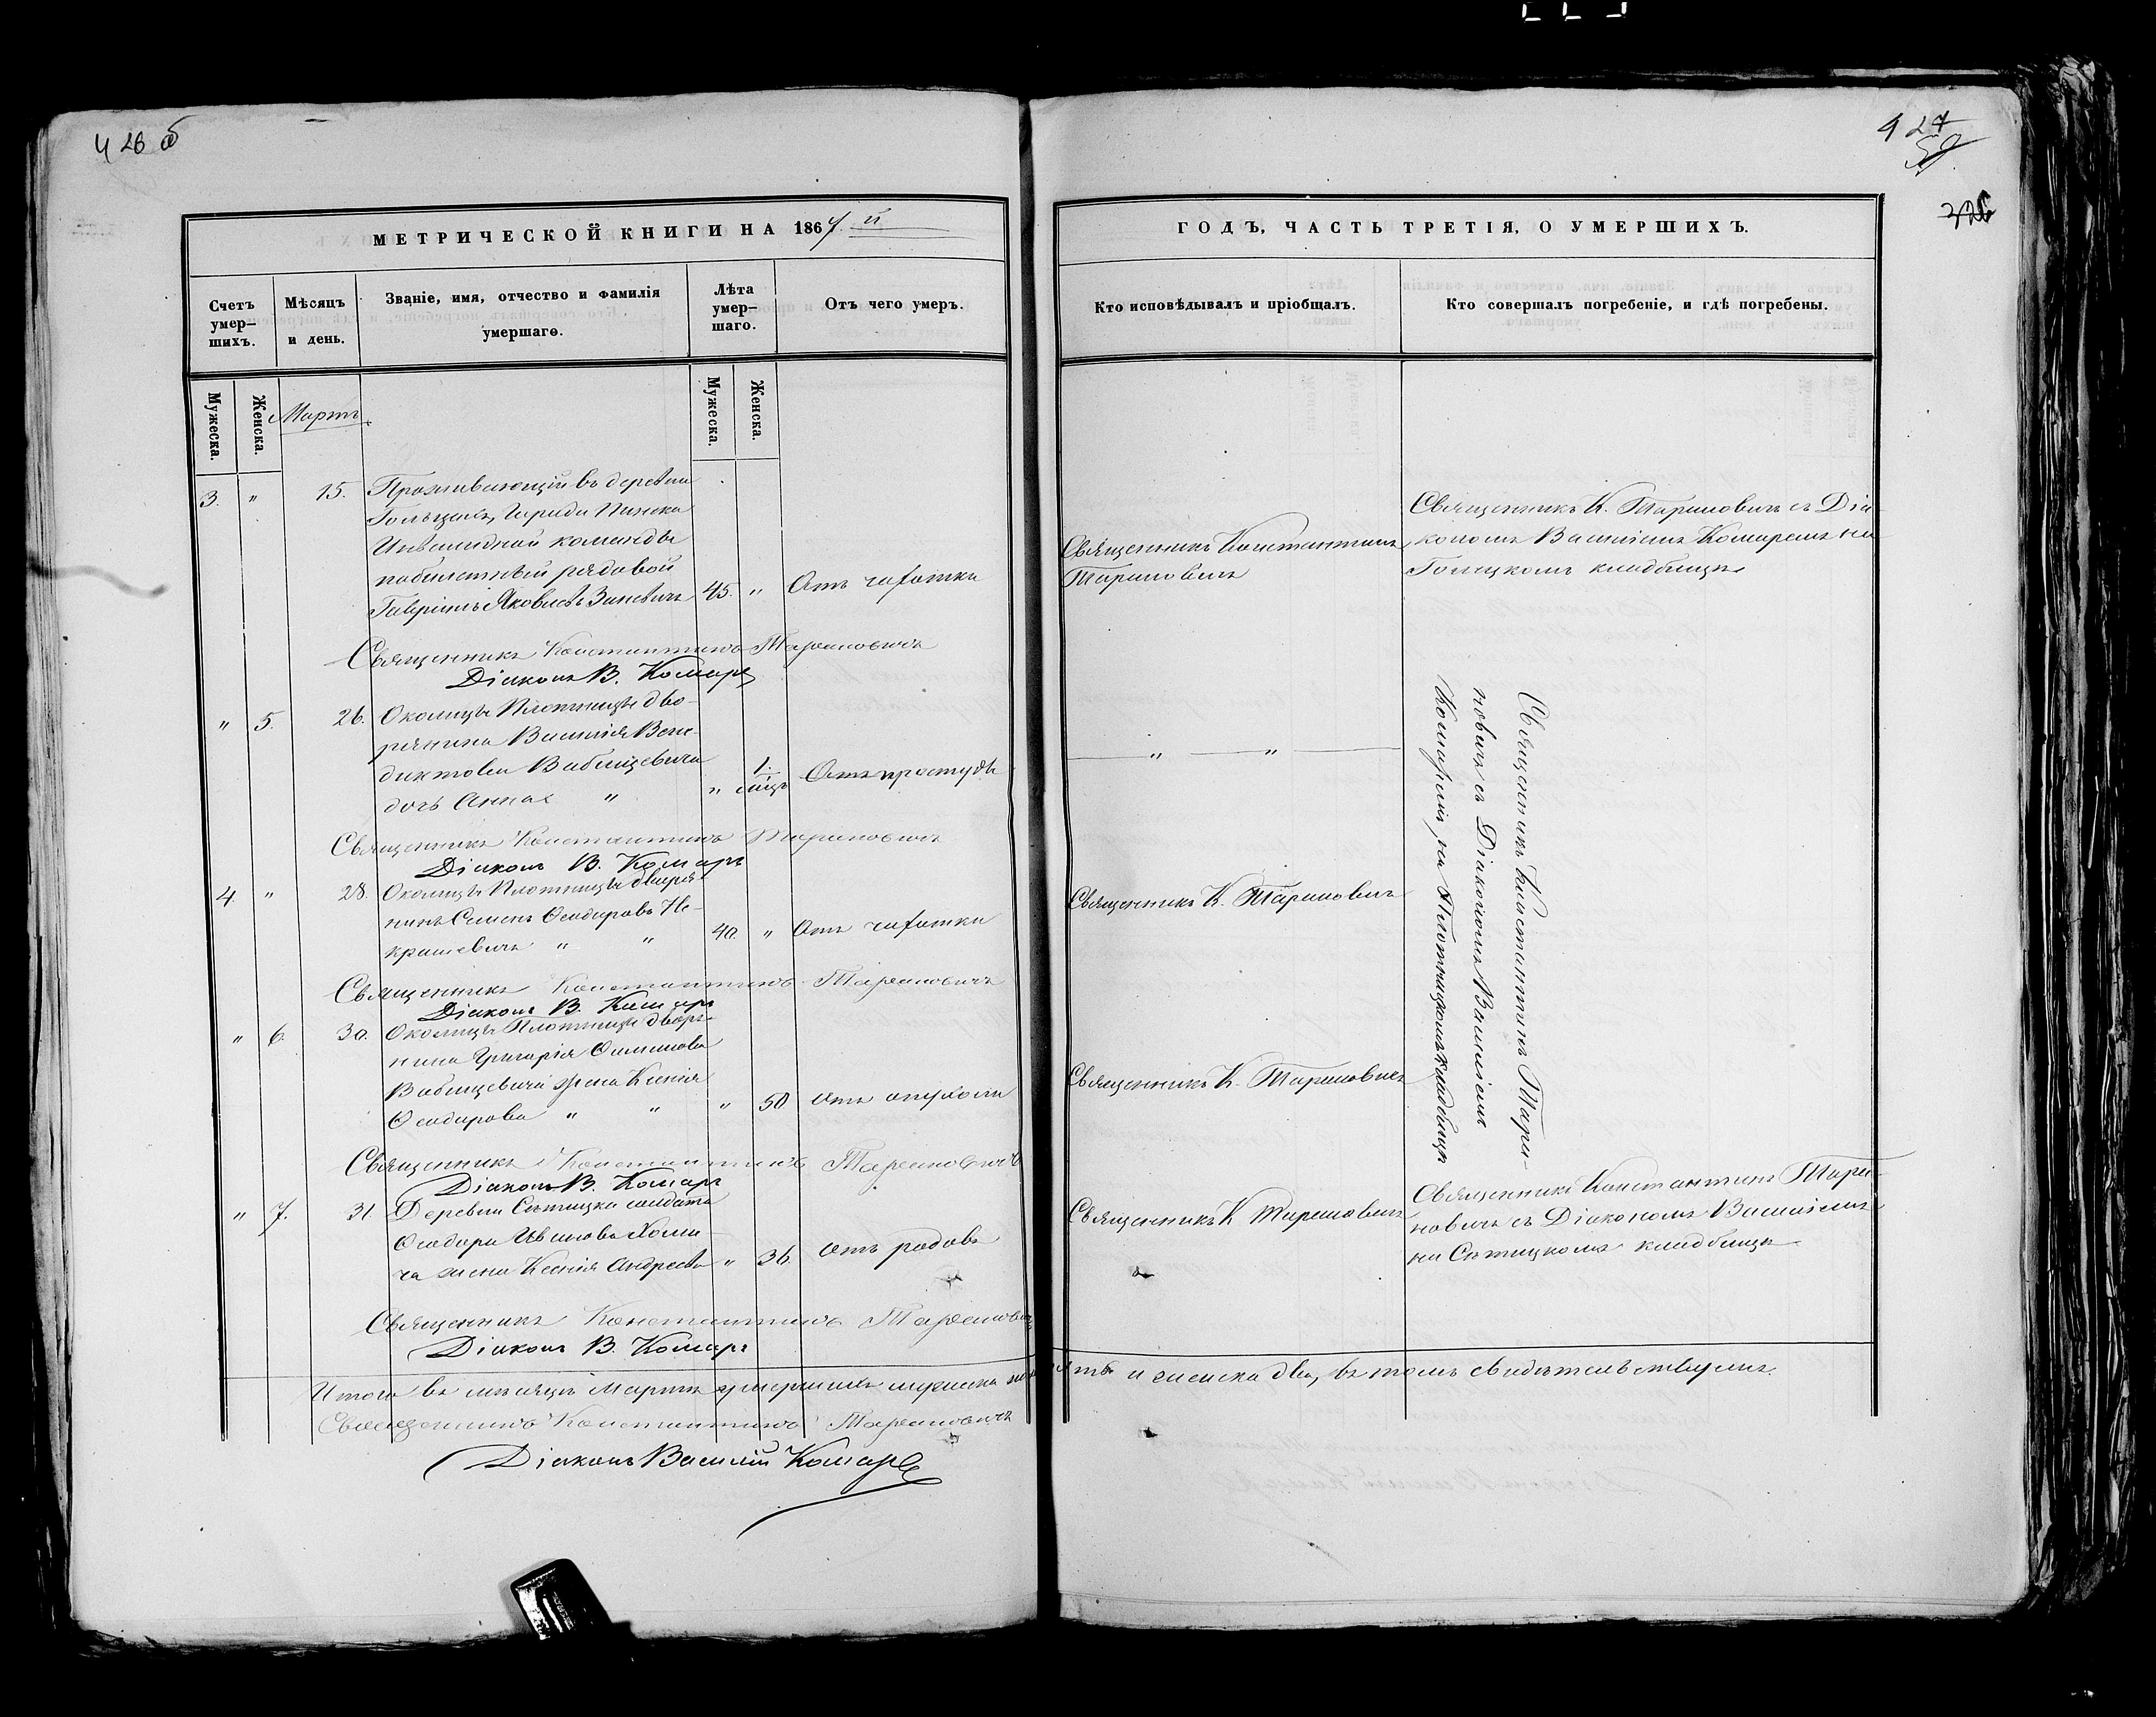 426 об
427
59
326
МЕТРИЧЕСКОЙ КНИГИ НА 1864 й
Счетъ умер–шихъ.
Мѣсяцъ и день.
Званіе, имя, отчество и фамилія умершаго.
Лѣта умер–шаго.
Отъ чего умеръ.
Мужеска.
Женска.
Мартъ.
Мужеска.
Женска.
3. " 15. Проживающій въ деревни
города Пинска
Инвалидной команды
побилетный рядовой
Гавріилъ Яковлевъ Заневичъ 45. " Отъ чахотки
Священникъ Константинъ Тарановичъ
Діаконъ В. Комаръ
" 5. 26. Околицы Плотницы дво-
рянина Василія Вене-
диктова Вабищевича
дочь Анна " " 1. мѣсц. Отъ простуды
Священникъ Константинъ Тарановичъ
Діаконъ В. Комаръ
4. " 28. Околицы Плотницы дворя-
нинъ Семенъ Ѳеодоровъ Не-
крашевичъ " " 40. " Отъ чахотки
Священникъ Константинъ Тарановичъ
Діаконъ В. Комаръ
" 6. 30. Околицы Плотницы дворя-
нина Григорія
Вабищевича жена Ксенія
Ѳеодорова " " " 50 отъ опухоли
Священникъ Константинъ Тарановичъ
Діаконъ В. Комаръ
" 7. 31. Деревни Сѣтицка солдата
Ѳеодора Иванова Хоми-
ча жена Ксенія Андреева " 36. отъ родовъ
Священникъ Константинъ Тарановичъ
Діаконъ В. Комаръ
Итого въ мѣсяцѣ Мартѣ умершихъ мужеска
Священникъ Константинъ Тарановичъ
Діаконъ Василій Комаръ
ГОДЪ, ЧАСТЬ ТРЕТІЯ, О УМЕРШИХЪ.
Кто исповѣдывалъ и пріобщалъ.
Кто совершалъ погребеніе, и гдѣ погребены.
Священникъ Константинъ
Тарановичъ
Священникъ К. Тарановичъ съ Діа-
кономъ Василіемъ Комаремъ на
кладбищѣ
" "
Священникъ К. Тарановичъ
Священникъ К. Тарановичъ
Священникъ Константинъ Тара-
новичъ съ Діакономъ Василіемъ
Комаремъ, на Плотницкомъ кладбищѣ
Священникъ К Тарановичъ
Священникъ Константинъ Тара-
новичъ съ Діакономъ Василіемъ
на Сѣтицкомъ кладбищѣ
и женска два, въ томъ свидѣтельствуемъ.